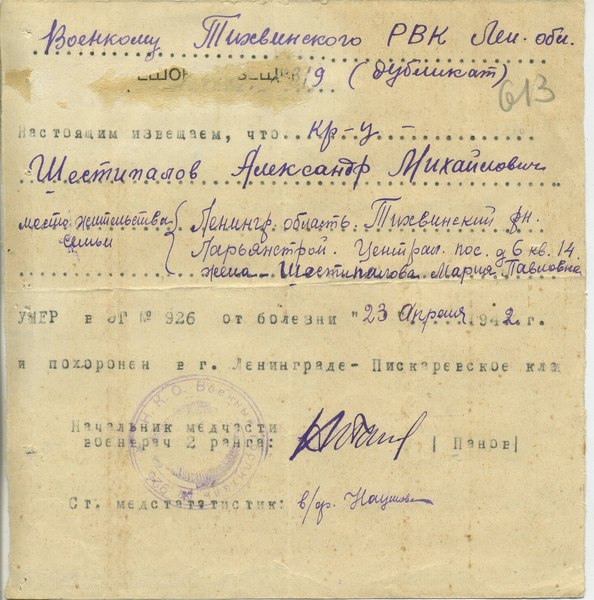 Военкому Тихвинского РВК Лен. обл.
/9 (дубликат)
613
Настоящим извещаем, что кр-ц
Шестипалов Александр Михайлович
место жительства Ленингр. область Тихвинский рн.
семьи Ларьянстрой. Централ. пос. д 6 кв. 14.
жена - Шестипалова Мария Павловна
УМЕР в ЭГ № 926 от болезни "23 Апреля" 1942 г.
и похоронен в г. Ленинграде- Пискаревское клад
Начальник медчасти
военврач 2 ранга: | Панов |
Н К О. Военный
Ст. медстататистик: в/ф.